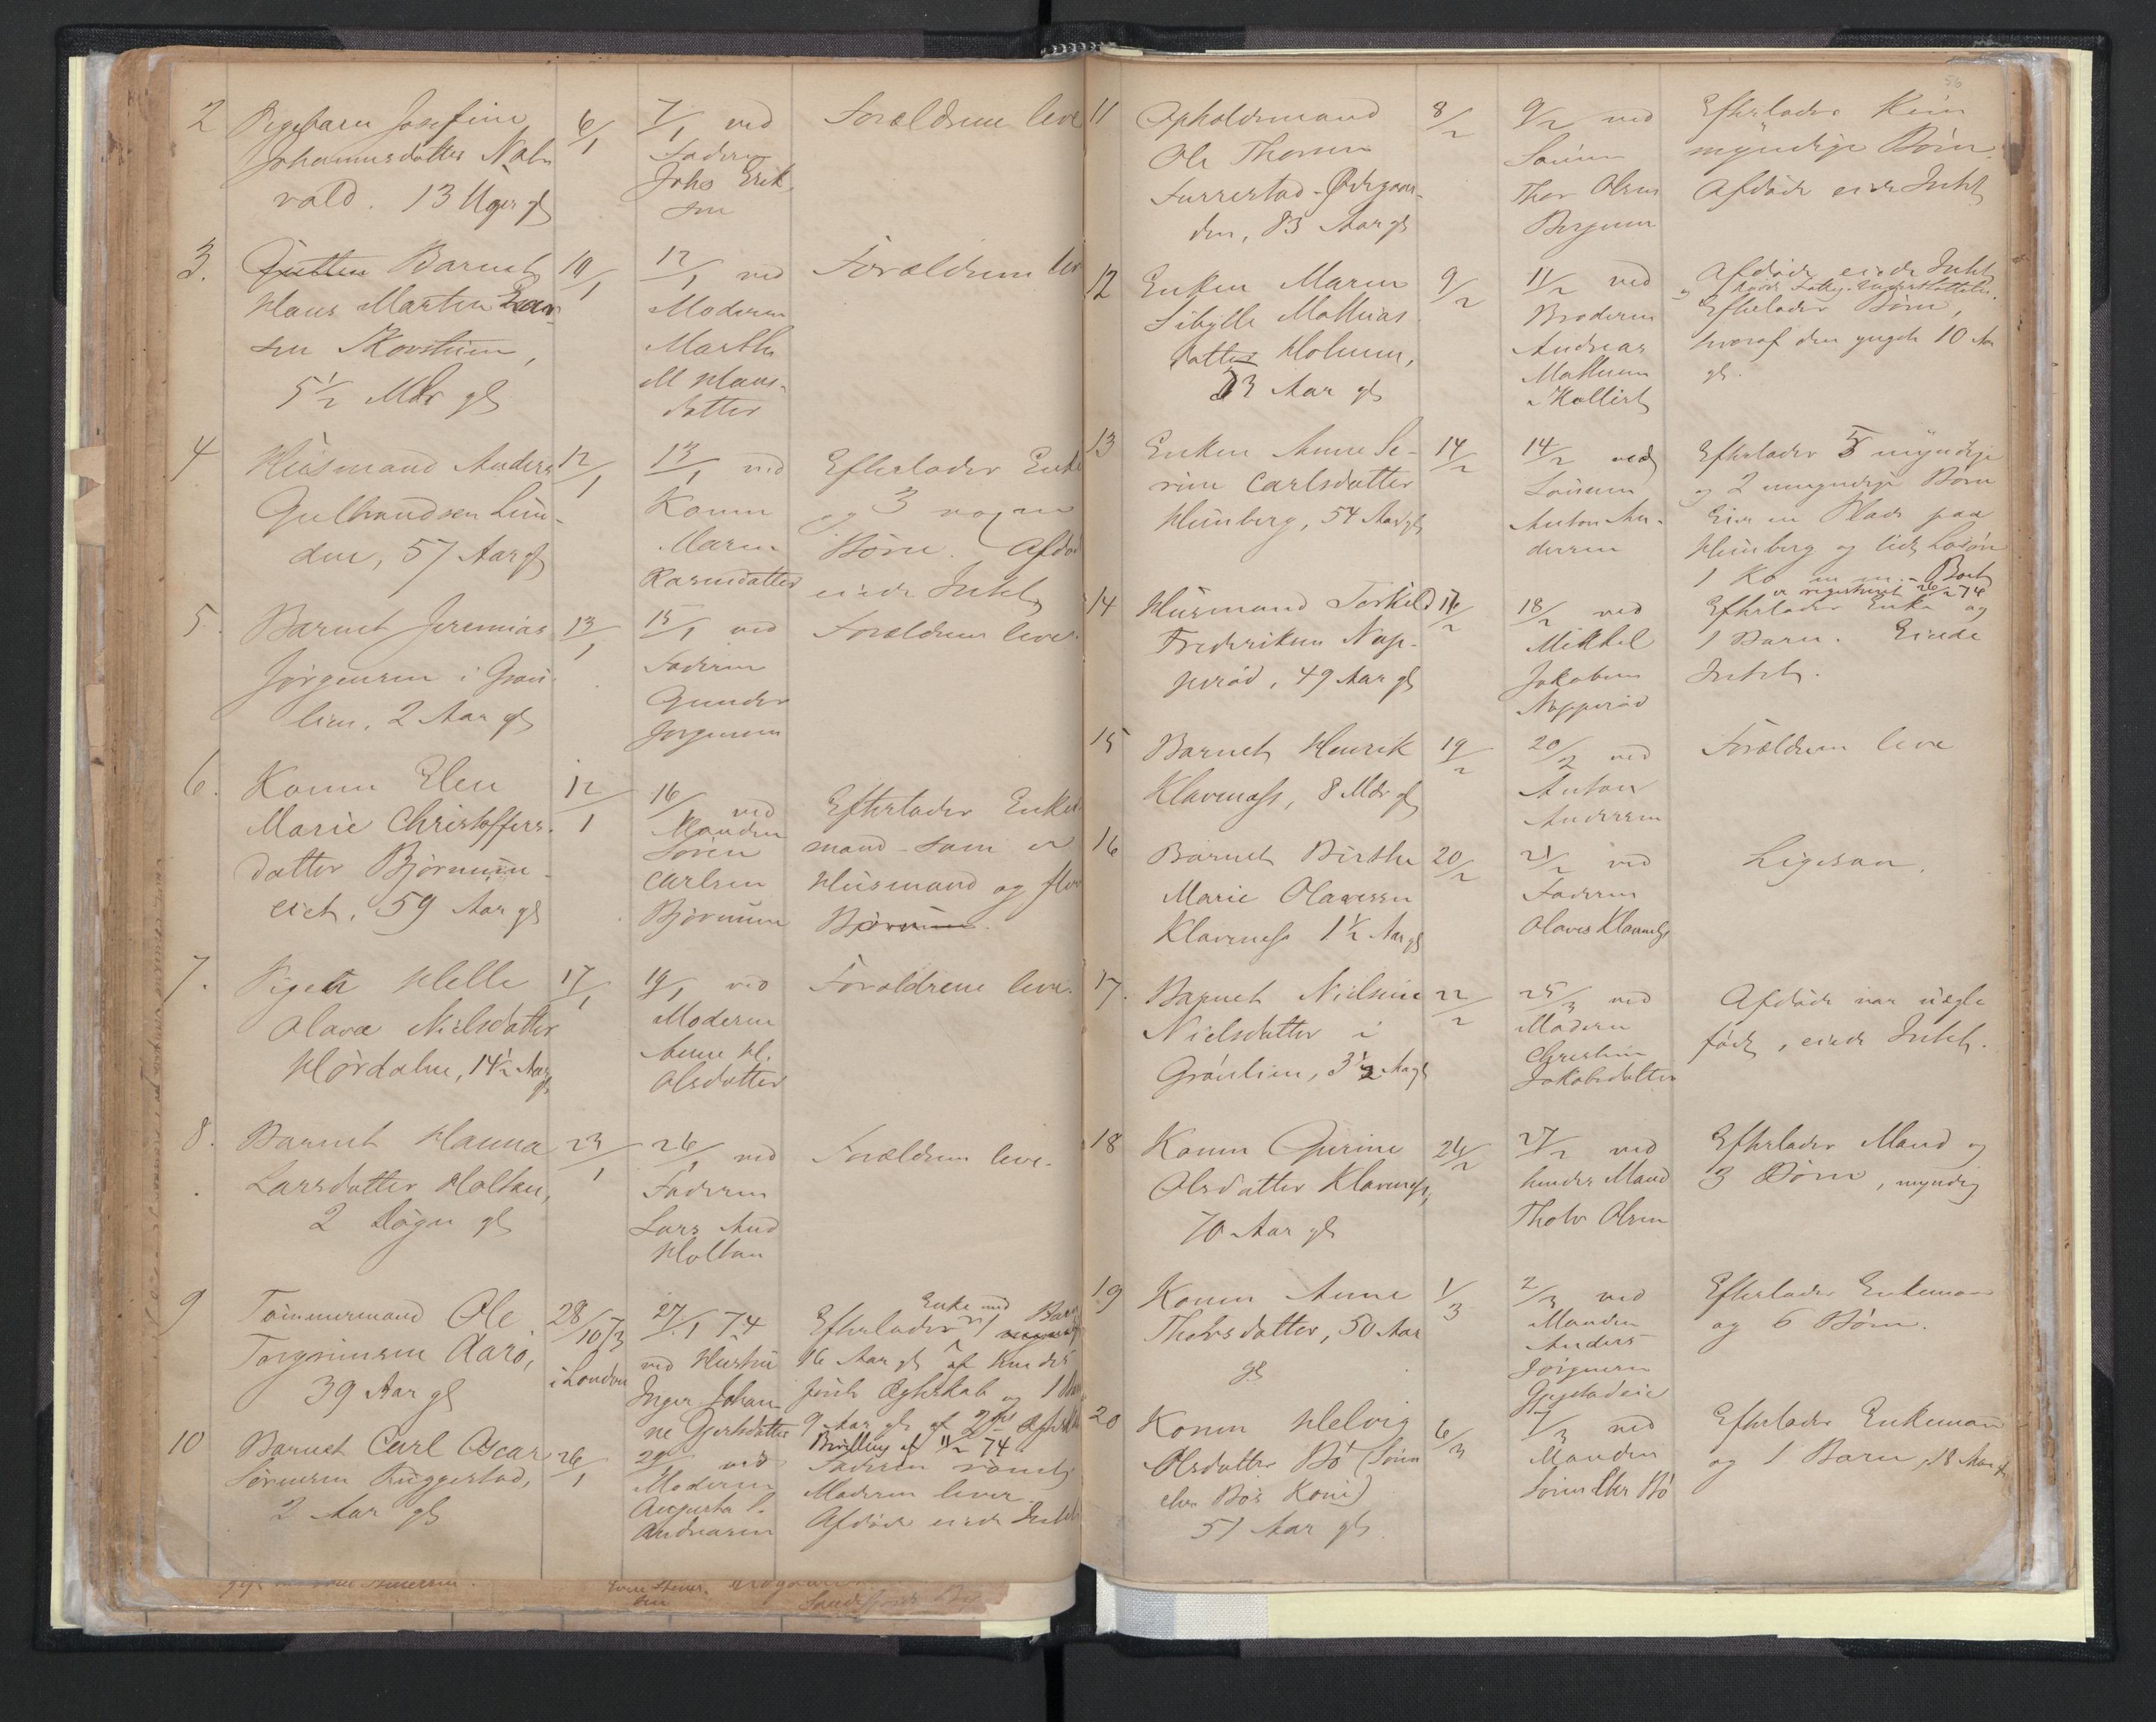 2 Pigebarn Josefine
Johannesdatter
vold. 13 Uger gl
6/1
7/1 ved
Faderen
Johs Erik-
sen
Forældrene leve
3. Gutten Barnet
Hans Martin
sen
5 1/2 Mdr gl
10/1
12/1 ved
Moderen
Marthe
M Hans-
datter
Forældrene lev
4 Husmand Anders
Gulbrandsen Lun-
den, 57 Aar gl
12/1
13/1 ved
Konen
Maren
Rasmusdatter
Efterlader Enke
og 3 voxne
Børn. Afdøde
eiede Intet
5. Barnet Jeremias
Jörgensen i Grøn-
lien, 2 Aar gl
13/1
15/1 ved
Faderen
Gunder
Jörgensen
Forældrene leve.
6. Konen Elen
Marie Christoffers-
datter Bjørnum-
eiet, 59 Aar gl
12/1
16/ ved
Manden
Sören
Carlsen
Bjørnum
Efterlader Enke-
mand som er
Husmand og flere
Börn
7. Pigen Helle
Olava Nielsdatter
Hördalen, 14 1/2 Aar
gl
17/1
19/1 ved
Moderen
Anne H.
Olsdatter
Forældrene leve.
8. Barnet Hanna
Larsdatter Holtan,
2 Døgn gl
23/1
26/1 ved
Faderen
Lars And
Holtan
Forældrene leve.
9 Tömmermand Ole
Torgrimsen Aarö,
39 Aar gl
28/10 73
i London
27/1 74
ved Hustru
Inger Johan-
ne Gjertsdatter
Enke med Barn
Efterlader 1
16 Aar gl af hendes
første Ægteskab og 1
9 Aar gl af 2det Ægtesk
74
10 Barnet Carl Oscar
Sörensen Ruggestad,
2 Aar gl
26/1
29/1 ved
Moderen
Augusta S.
Andreasen
Faderen römt,
Moderen lever.
Afdøde eiede Intet
11 Opholdsmand
Ole Thorsen
Furrestad-Ødegaar-
den, 83 Aar gl
8/2
9/2 ved
Sönnen
Thor Olsen
Bergem
Efterlader Kun
myndige Børn.
Afdøde eiede Intet
12 Enken Maren
Sibylle Mathias
datter Holmen,
53 Aar gl
9/2
11/2 ved
Broderen
Andreas
Mathisen
Afdøde eiede Intet
og havde Fattig-Understøttelse.
Efterlader Børn,
hvoraf den yngste 10 Aar
gl.
13 Enken Anne Se-
rine Carlsdatter
Himberg, 54 Aar gl
14/2
14/2 ved
Sönnen
Anton An-
dersen
Efterlader 5 myndige
og 2 umyndige Börn
Eier en Plads paa
Himberg og lidt Lösöre
1 Ko m m. - Boet
er registreret 26/2 74
14 Husmand Torkild
Frederiksen Nap-
peröd, 49 Aar gl
16/2
18/2 ved
Mikkel
Jakobsen
Napperöd
Efterlader Enke og
1 Barn. Eiede
Intet.
15 Barnet Henrik
Klavenæss, 8 Mdr gl
19/2
20/2 ved
Anton
Andersen
Forældrene leve
16 Barnet Birthe
Marie Olavesen
Klavenæss 1 1/2 Aar gl
20/2
21/2 ved
Faderen
Olaves Klavenæss
Ligesaa.
17. Barnet Nielsine
Nielsdatter i
Grönlien, 3 1/2 Aar gl
22/2
25/3 ved
Moderen
Christine
Jakobsdatter
Afdøde var uægte
født, eiede Intet.
18 Konen Gurine
Olsdatter Klavenæss,
70 Aar gl
24/2
27/2 ved
hendes Mand
Tholv Olsen
Efterlader Mand og
3 Børn, myndig
19 Konen Anne
Tholvsdatter, 50 Aar
gl
1/3
2/3 ved
Manden
Anders
Jörgensen
Efterlader Enkemand
og 6 Børn.
20 Konen Helvig
Olsdatter Bö (Sören
Chr. Bös Kone)
51 Aar gl.
6/3
7/3 ved
Manden
Sören Chr Bö
Efterlader Enkemand
og 1 Barn, 18 Aar gl